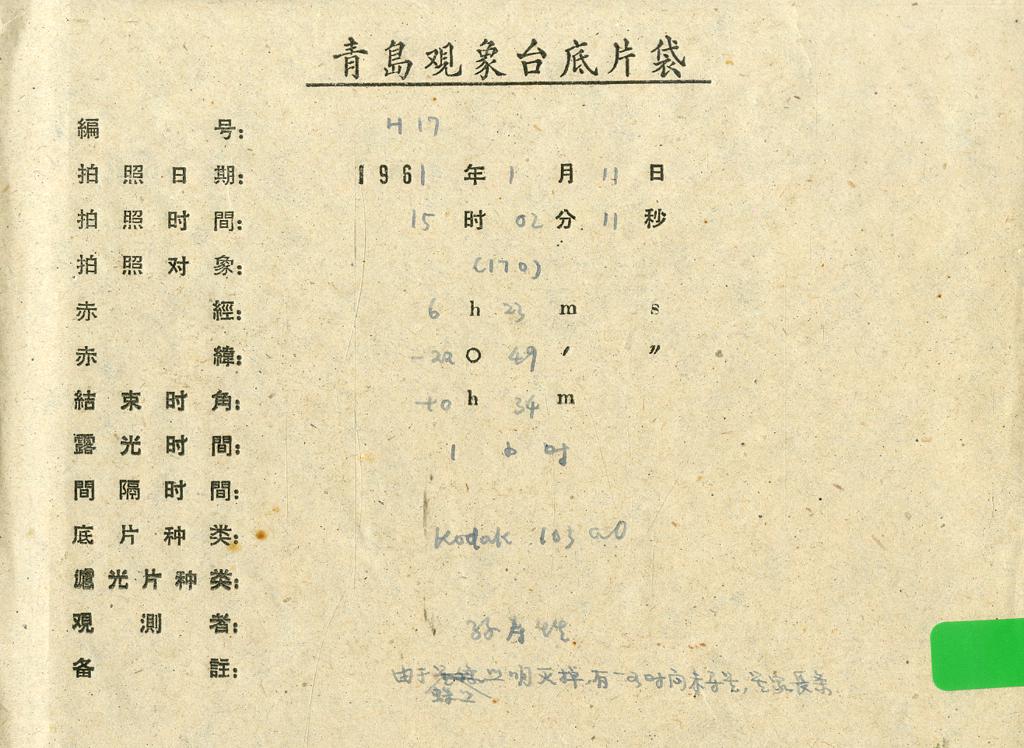 青島观象台底片袋
編号: H 17
拍照日期: 1961年1月11日
拍照时間: 15时02分11秒
拍照对象: (170)
赤經: 6 h 23 m s
赤緯: -22 ○ 49 ′ ″
結束时角: +0 h 34 m
露光时間: 1 小时
間隔时間:
底片种类: Kodak 103 aO
濾光片种类:
观測者:
备註: 由于灭掉,有一分时间未